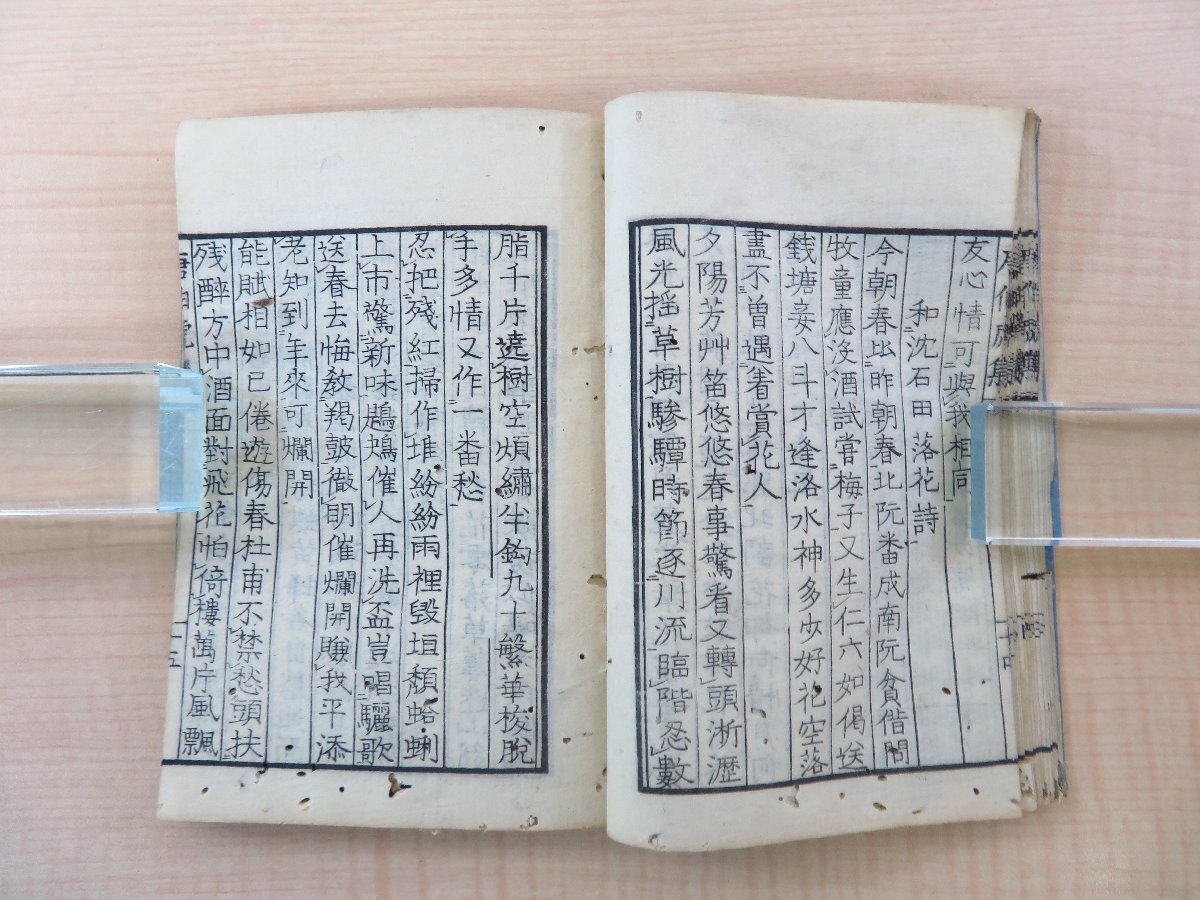 友心情可與我相同
和沈石田落花詩
今朝春比昨朝春北阮番成南阮貧借問
牧童應沒酒試嘗梅子又生仁六如偈送
錢塘妾八斗才逢洛水神多少好花空落
盡不曽遇着賞花人
夕陽芳艸笛悠悠春事驚看又轉頭淅瀝
風光搖草樹驂驔時節逐川流臨階忍數
脂千片遶樹空煩繡半鈎九十繁華梭脫
手多情又作一番愁
忍把殘紅掃作堆紛紛雨裡毀垣頹蛤蜊
上市驚新味鶗鴂催人再洗盃豈唱驪歌
送春去悔教羯鼓徹明催爛開賺我平添
老知到年來可爛開
能賦相如已倦遊傷春杜甫不禁愁頭扶
残醉方中酒面對飛花怕倚樓萬片風飄